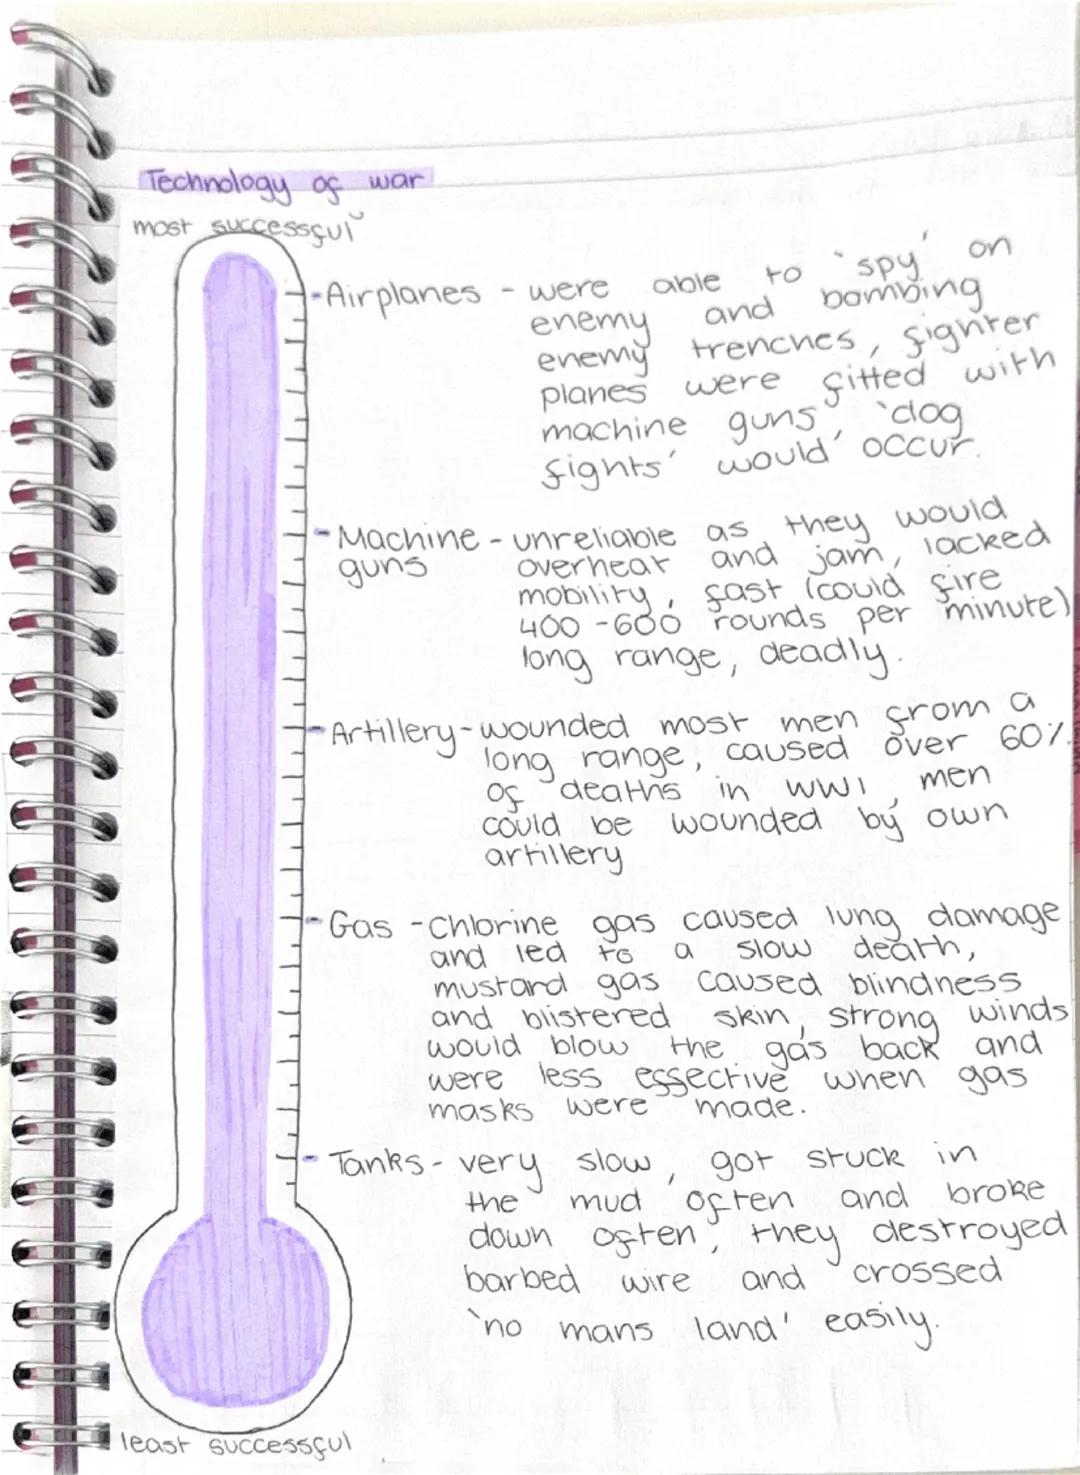 Technology of war
most successful
- Airplanes - were able to 'spy' on
enemy and bombing
enemy trenches, fighter
planes were fitted with
machine guns, 'dog
fights' would occur.
- Machine - unreliable as they would
guns overheat and jam, lacked
mobility, fast (could fire
400 - 600 rounds per minute)
long range, deadly.
- Artillery - wounded most men from a
long range, caused over 60%
of deaths in WW1, men
could be wounded by own
artillery
- Gas - Chlorine gas caused lung damage
and led to a slow death,
mustard gas caused blindness
and blistered skin, strong winds
would blow the gas back and
were less effective when gas
masks were made.
- Tanks - very slow, got stuck in
the mud often and broke
down often, they destroyed
barbed wire and crossed
'no mans land' easily.
least successful